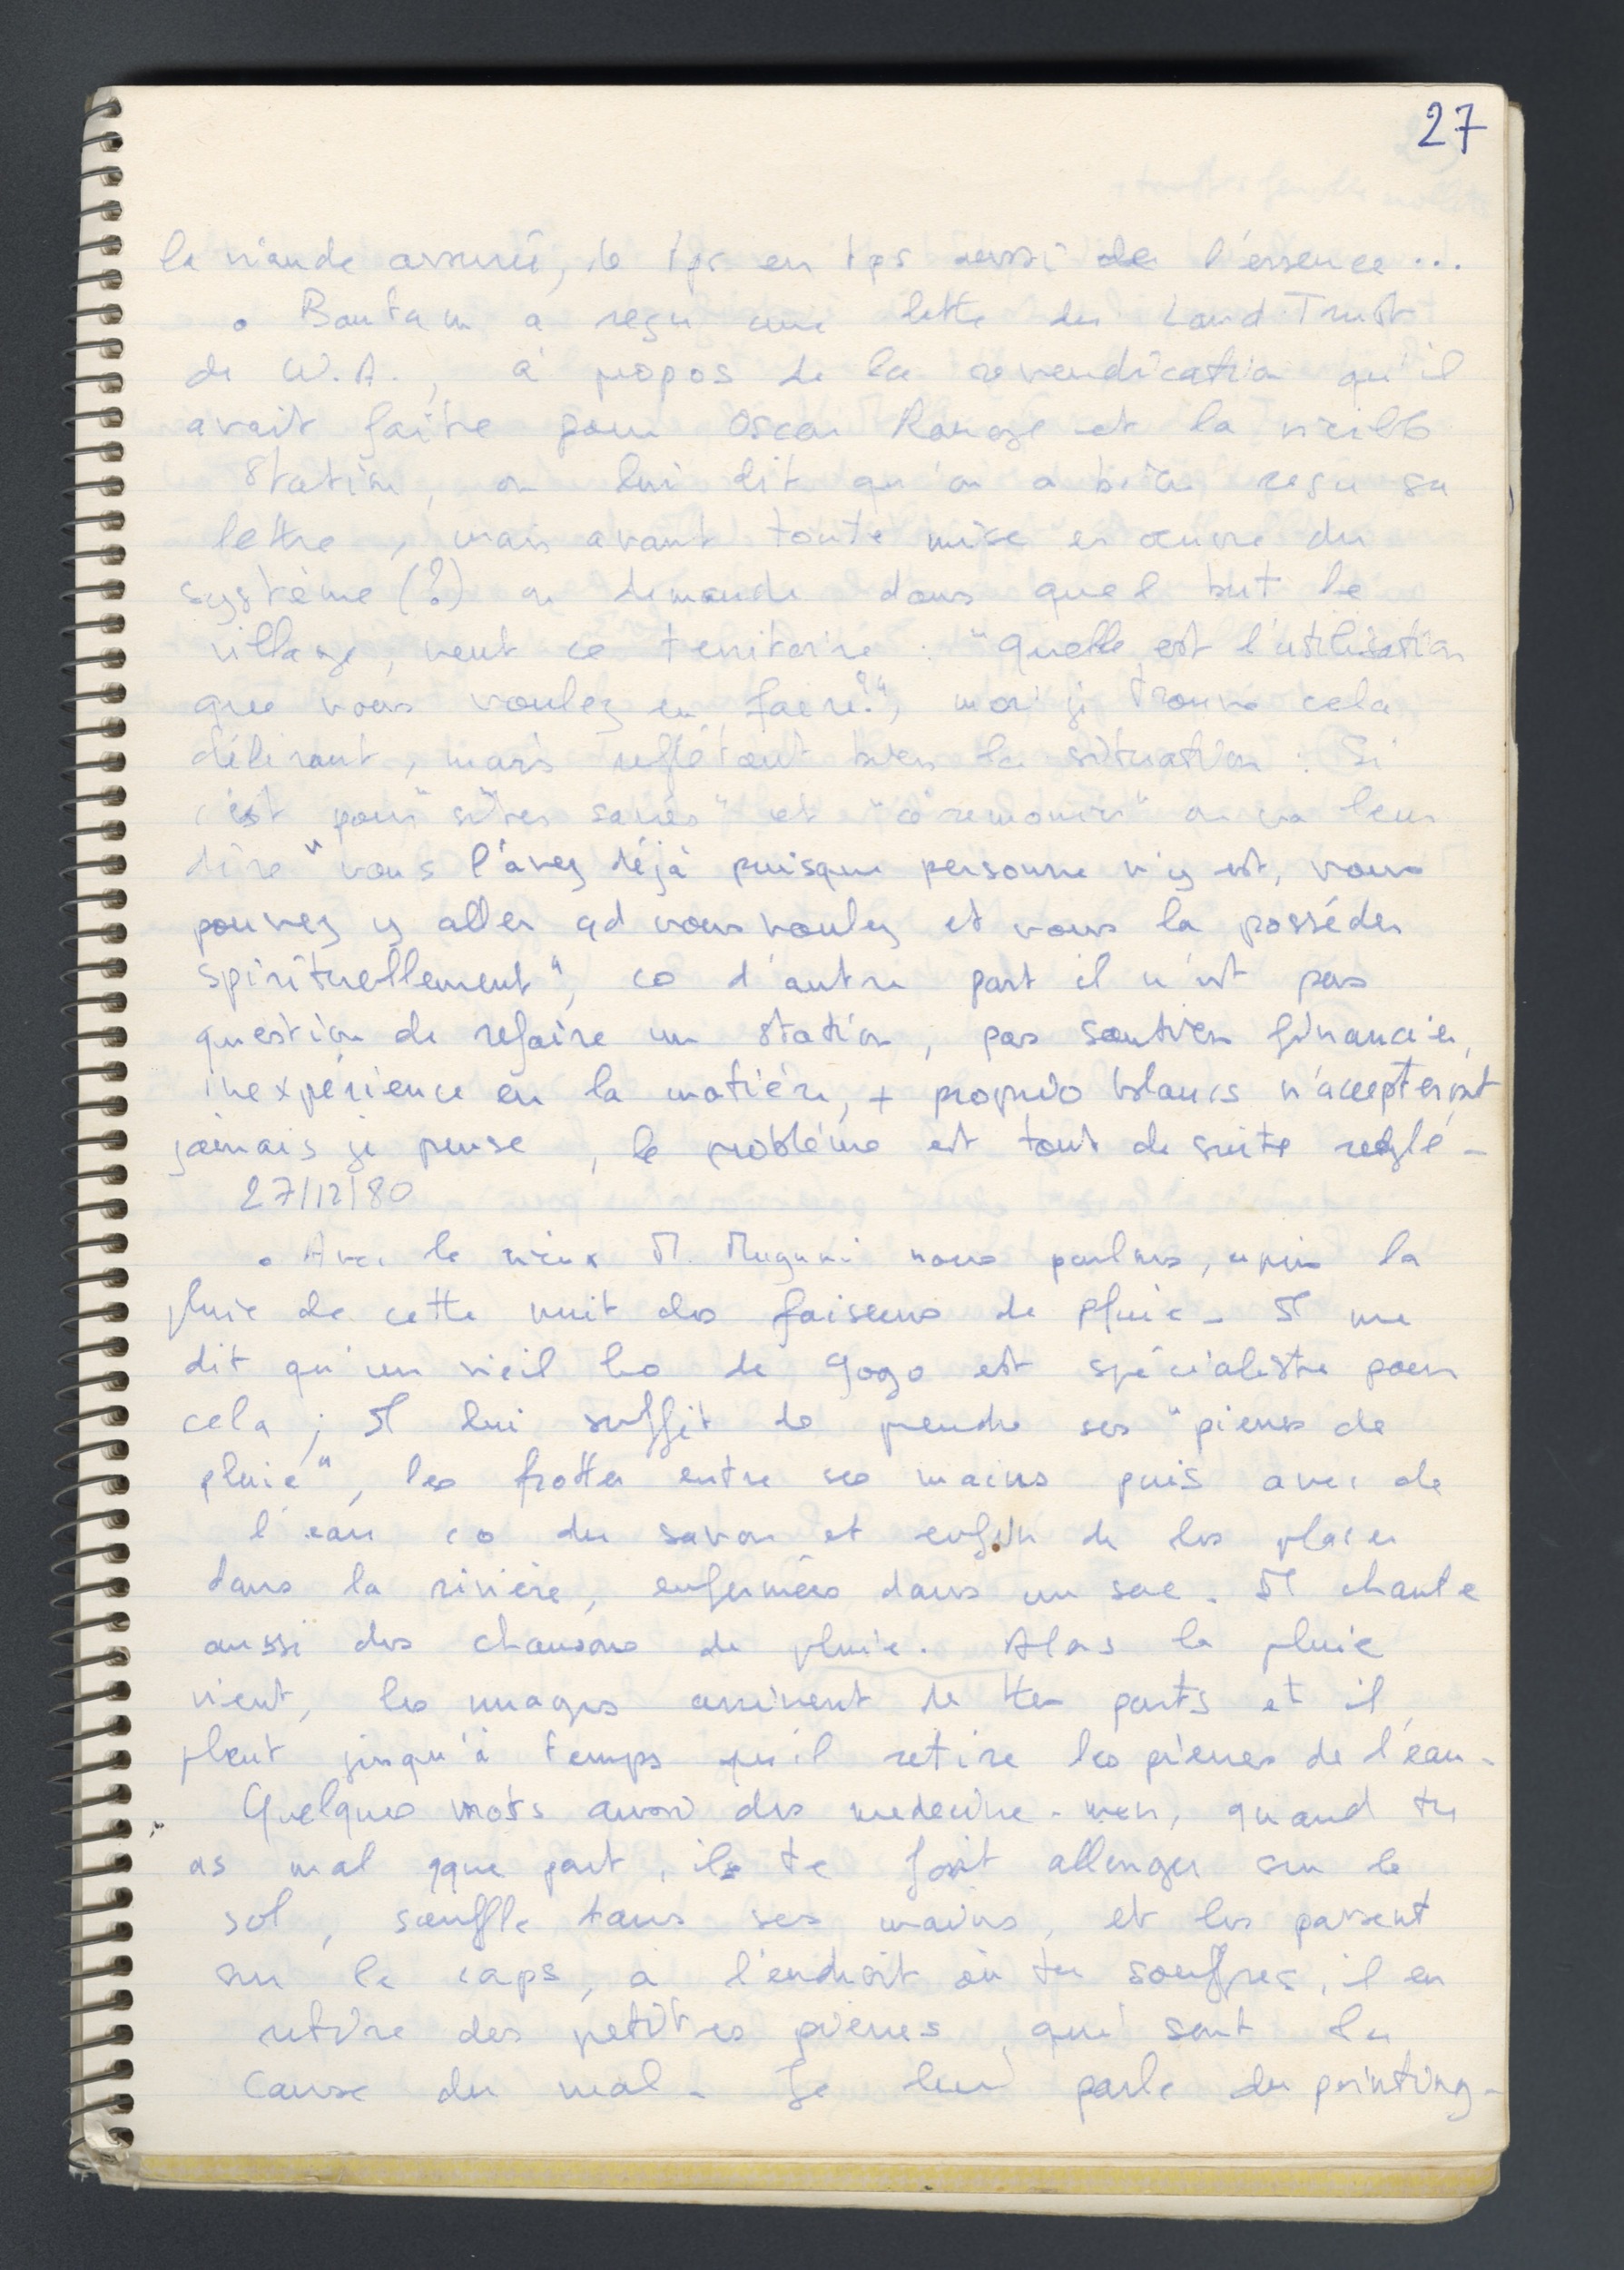 27
la viande assurée, de tps en tps aussi de l'essence...
• Bantam a reçu une lettre du Land Trust
de W.A., à propos de la revendication qu'il
avait faite pour Oscar Range et la vieille
station, on lui dit qu'on a bien reçu sa
lettre, mais avant toute mise en œuvre du
système (?) on demande dans quel but le
village, veut ce territoire : "quelle est l'utilisation
que vous voulez en faire?", moi je trouve cela
délirant, mais reflétant bien la situation : Si
c'est pour "sites sacrés" et "cérémonies" on va leur
dire "vous l'avez déjà puisque personne n'y est, vous
pouvez y aller qd vous voulez et vous la posséder
spirituellement", co d'autre part il n'est pas
question de refaire un station, pas soutien financier,
inexpérience en la matière, + proprio blancs n'accepteront
jamais je pense, le problème est tout de suite réglé -
27/12/80
• Avec le vieux M. nous parlons, après la
pluie de cette nuit des faiseurs de pluie - Il me
dit qu'un vieil ho de Gogo est spécialiste pour
cela ; Il lui suffit de prendre ses "pierres de
pluie", les frotter entre ses mains puis avec de
l'eau co du savon et enfin de les placer
dans la rivière, enfermées dans un sac. Il chante
aussi des chansons de pluie. Alors la pluie
vient, les nuages arrivent de ttes parts et il
pleut jusqu'à temps qu'il retire les pierres de l'eau -
Quelques mots aussi des medecine-men, quand tu
as mal qque part, ils te font allonger sur le
sol, souffle dans ses mains, et les passent
sur le corps, à l'endroit où tu souffres, il en
retire des petites pierres, qui sont la
cause du mal - Je leur parle du pointing-